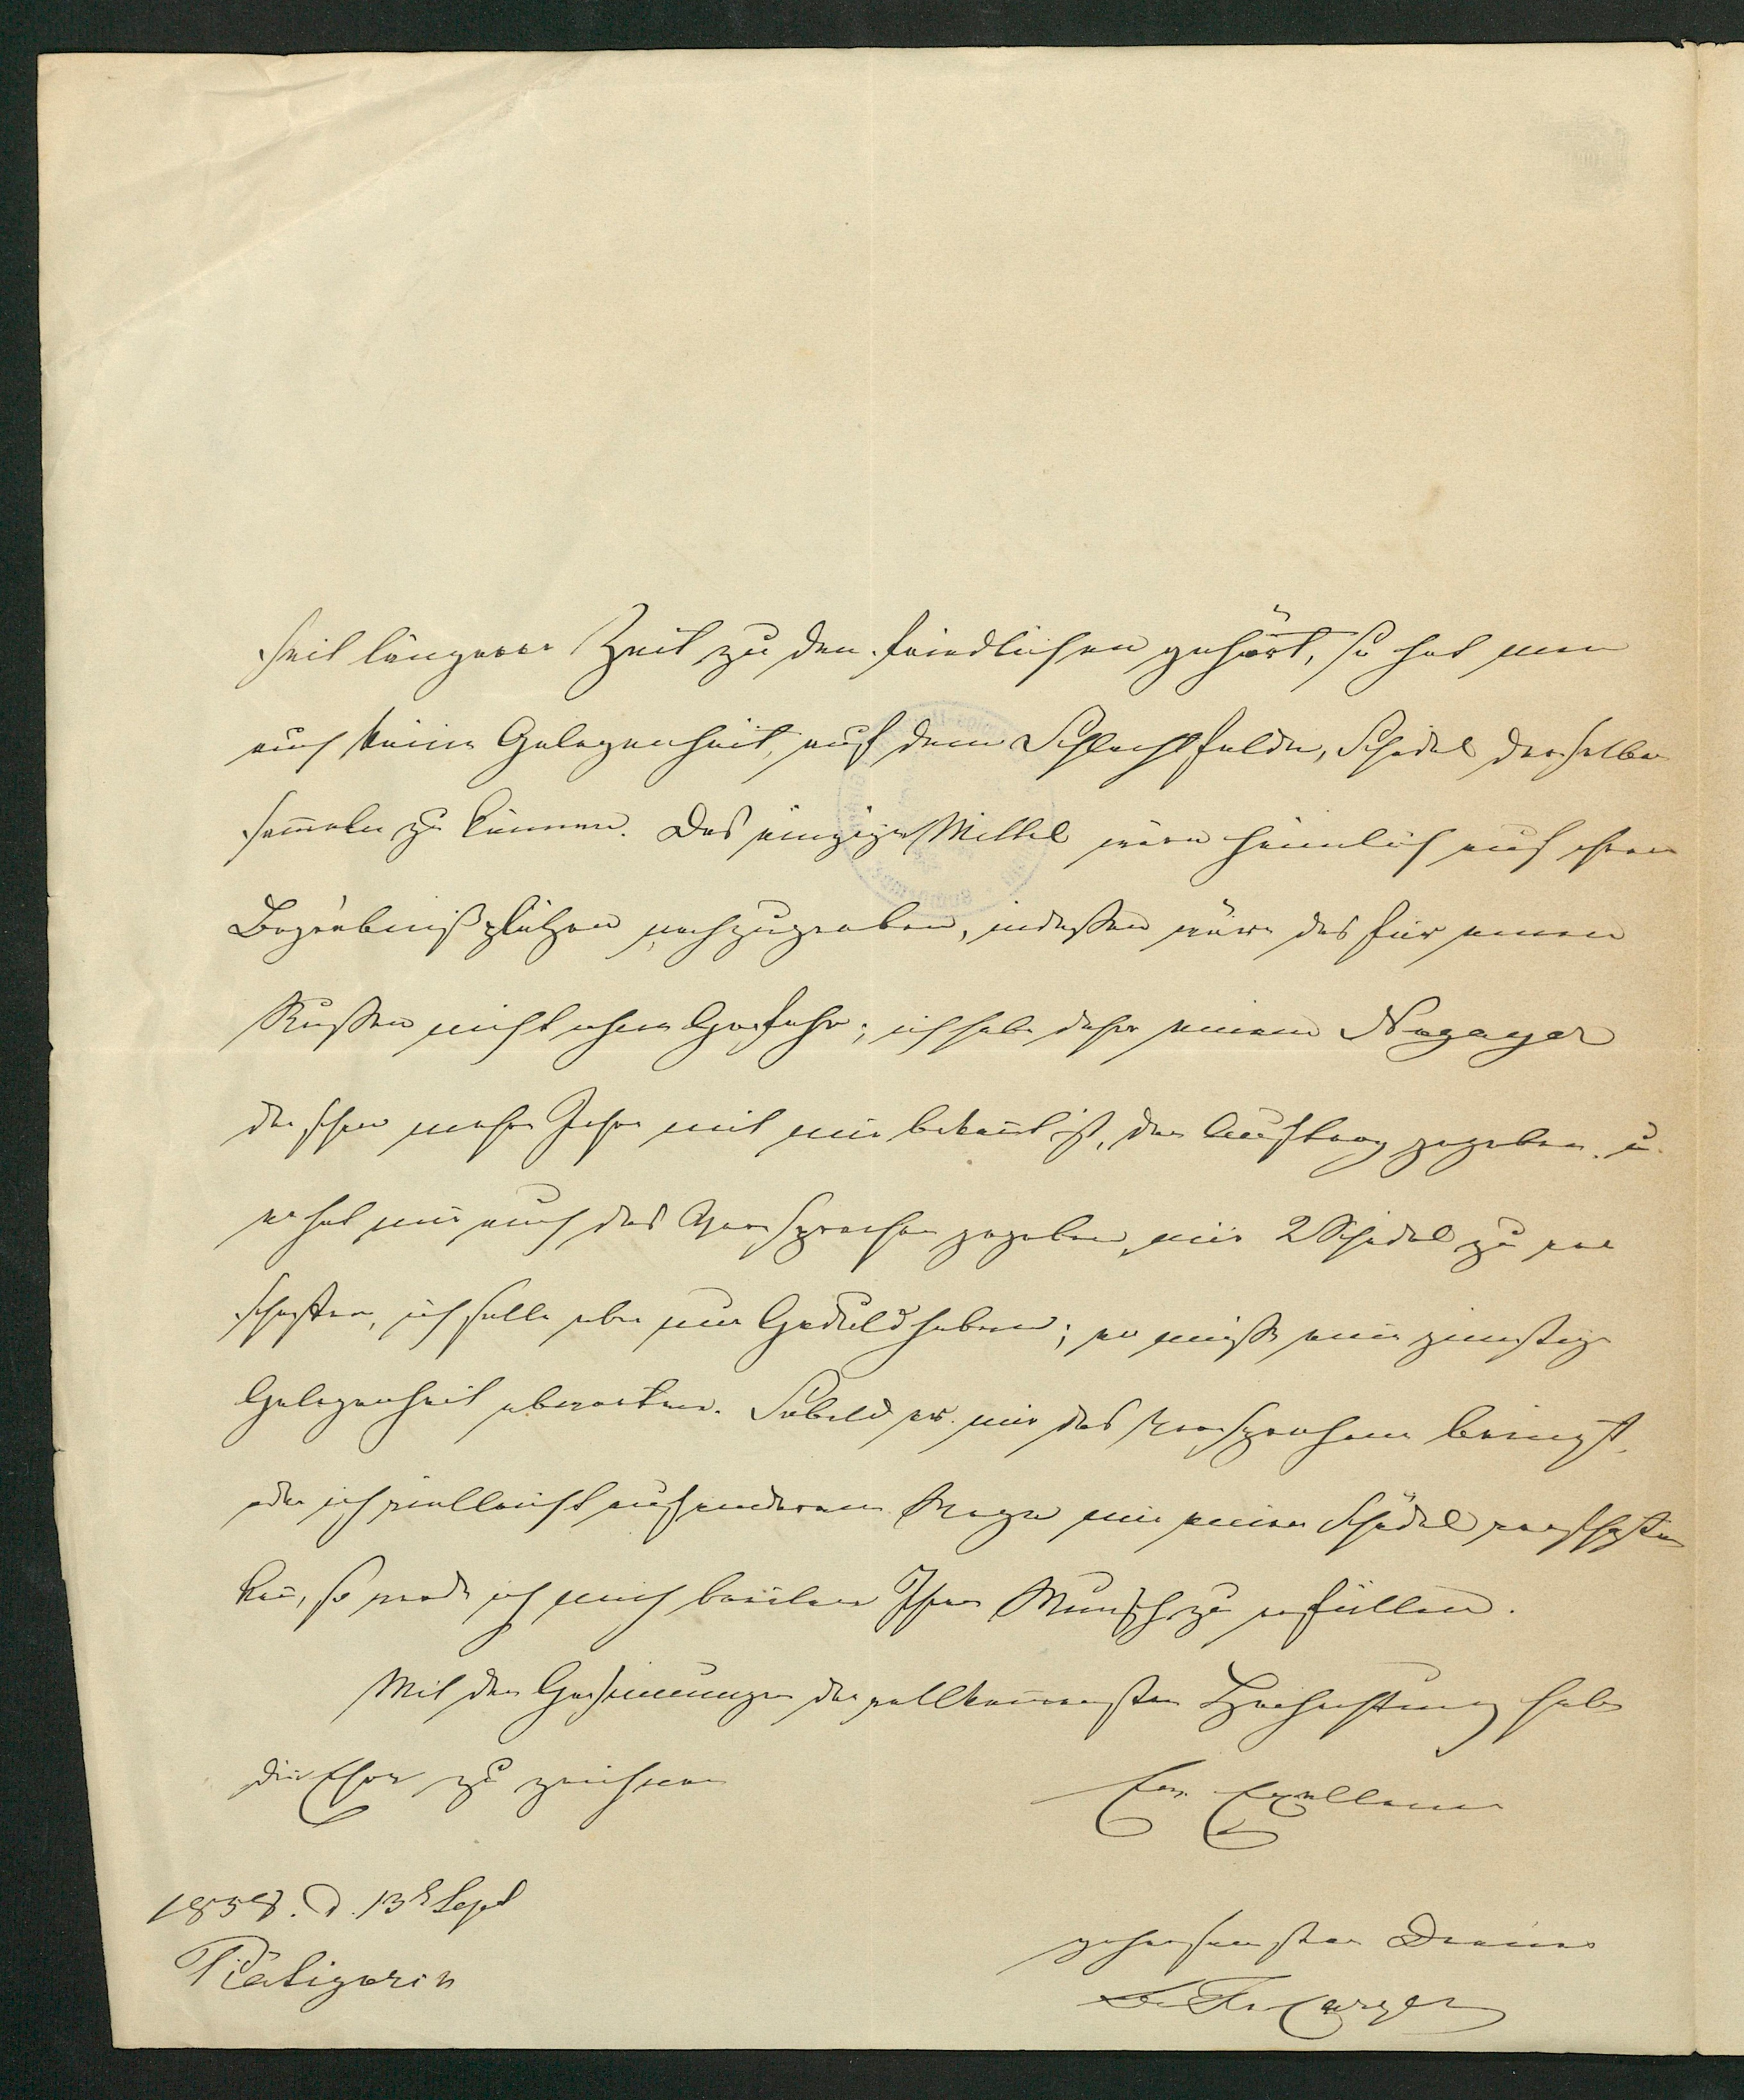 seit längerer Zeit zu den friedlichen gehört, so hat man
auch keine Gelegenheit, auf dem Schlachtfelde, Schädel derselben
sam̄eln zu können. Das einzige Mittel wäre heimlich auf ihren
Begräbnißplätzen nachzugraben, indessen wäre das für einen
Russen nicht ohne Gefahr; ich habe daher einem Nogayer
der schon mehre Jahre mit mir bekan̄t ist, den Auftrag gegeben u.
er hat mir auch das Versprechen gegeben, mir 2 Schädel zu ver
schaffen, ich solle aber nur Geduld haben; er müsse eine günstige
Gelegenheit abwarten. Sobald er mir das Versprochene bringt,
oder ich vielleicht auf anderem Wege mir einen Schädel verschaffen
kan̄, so werde ich mich beeilen Ihren Wunsch zu erfüllen.
Mit den Gesinnungen der vollkom̄ensten Hochachtung habe
die Ehre zu zeichnen
Ew. Excellenz
1858. d. 13t Sept
gehorsamster Diener
Piatigorsk